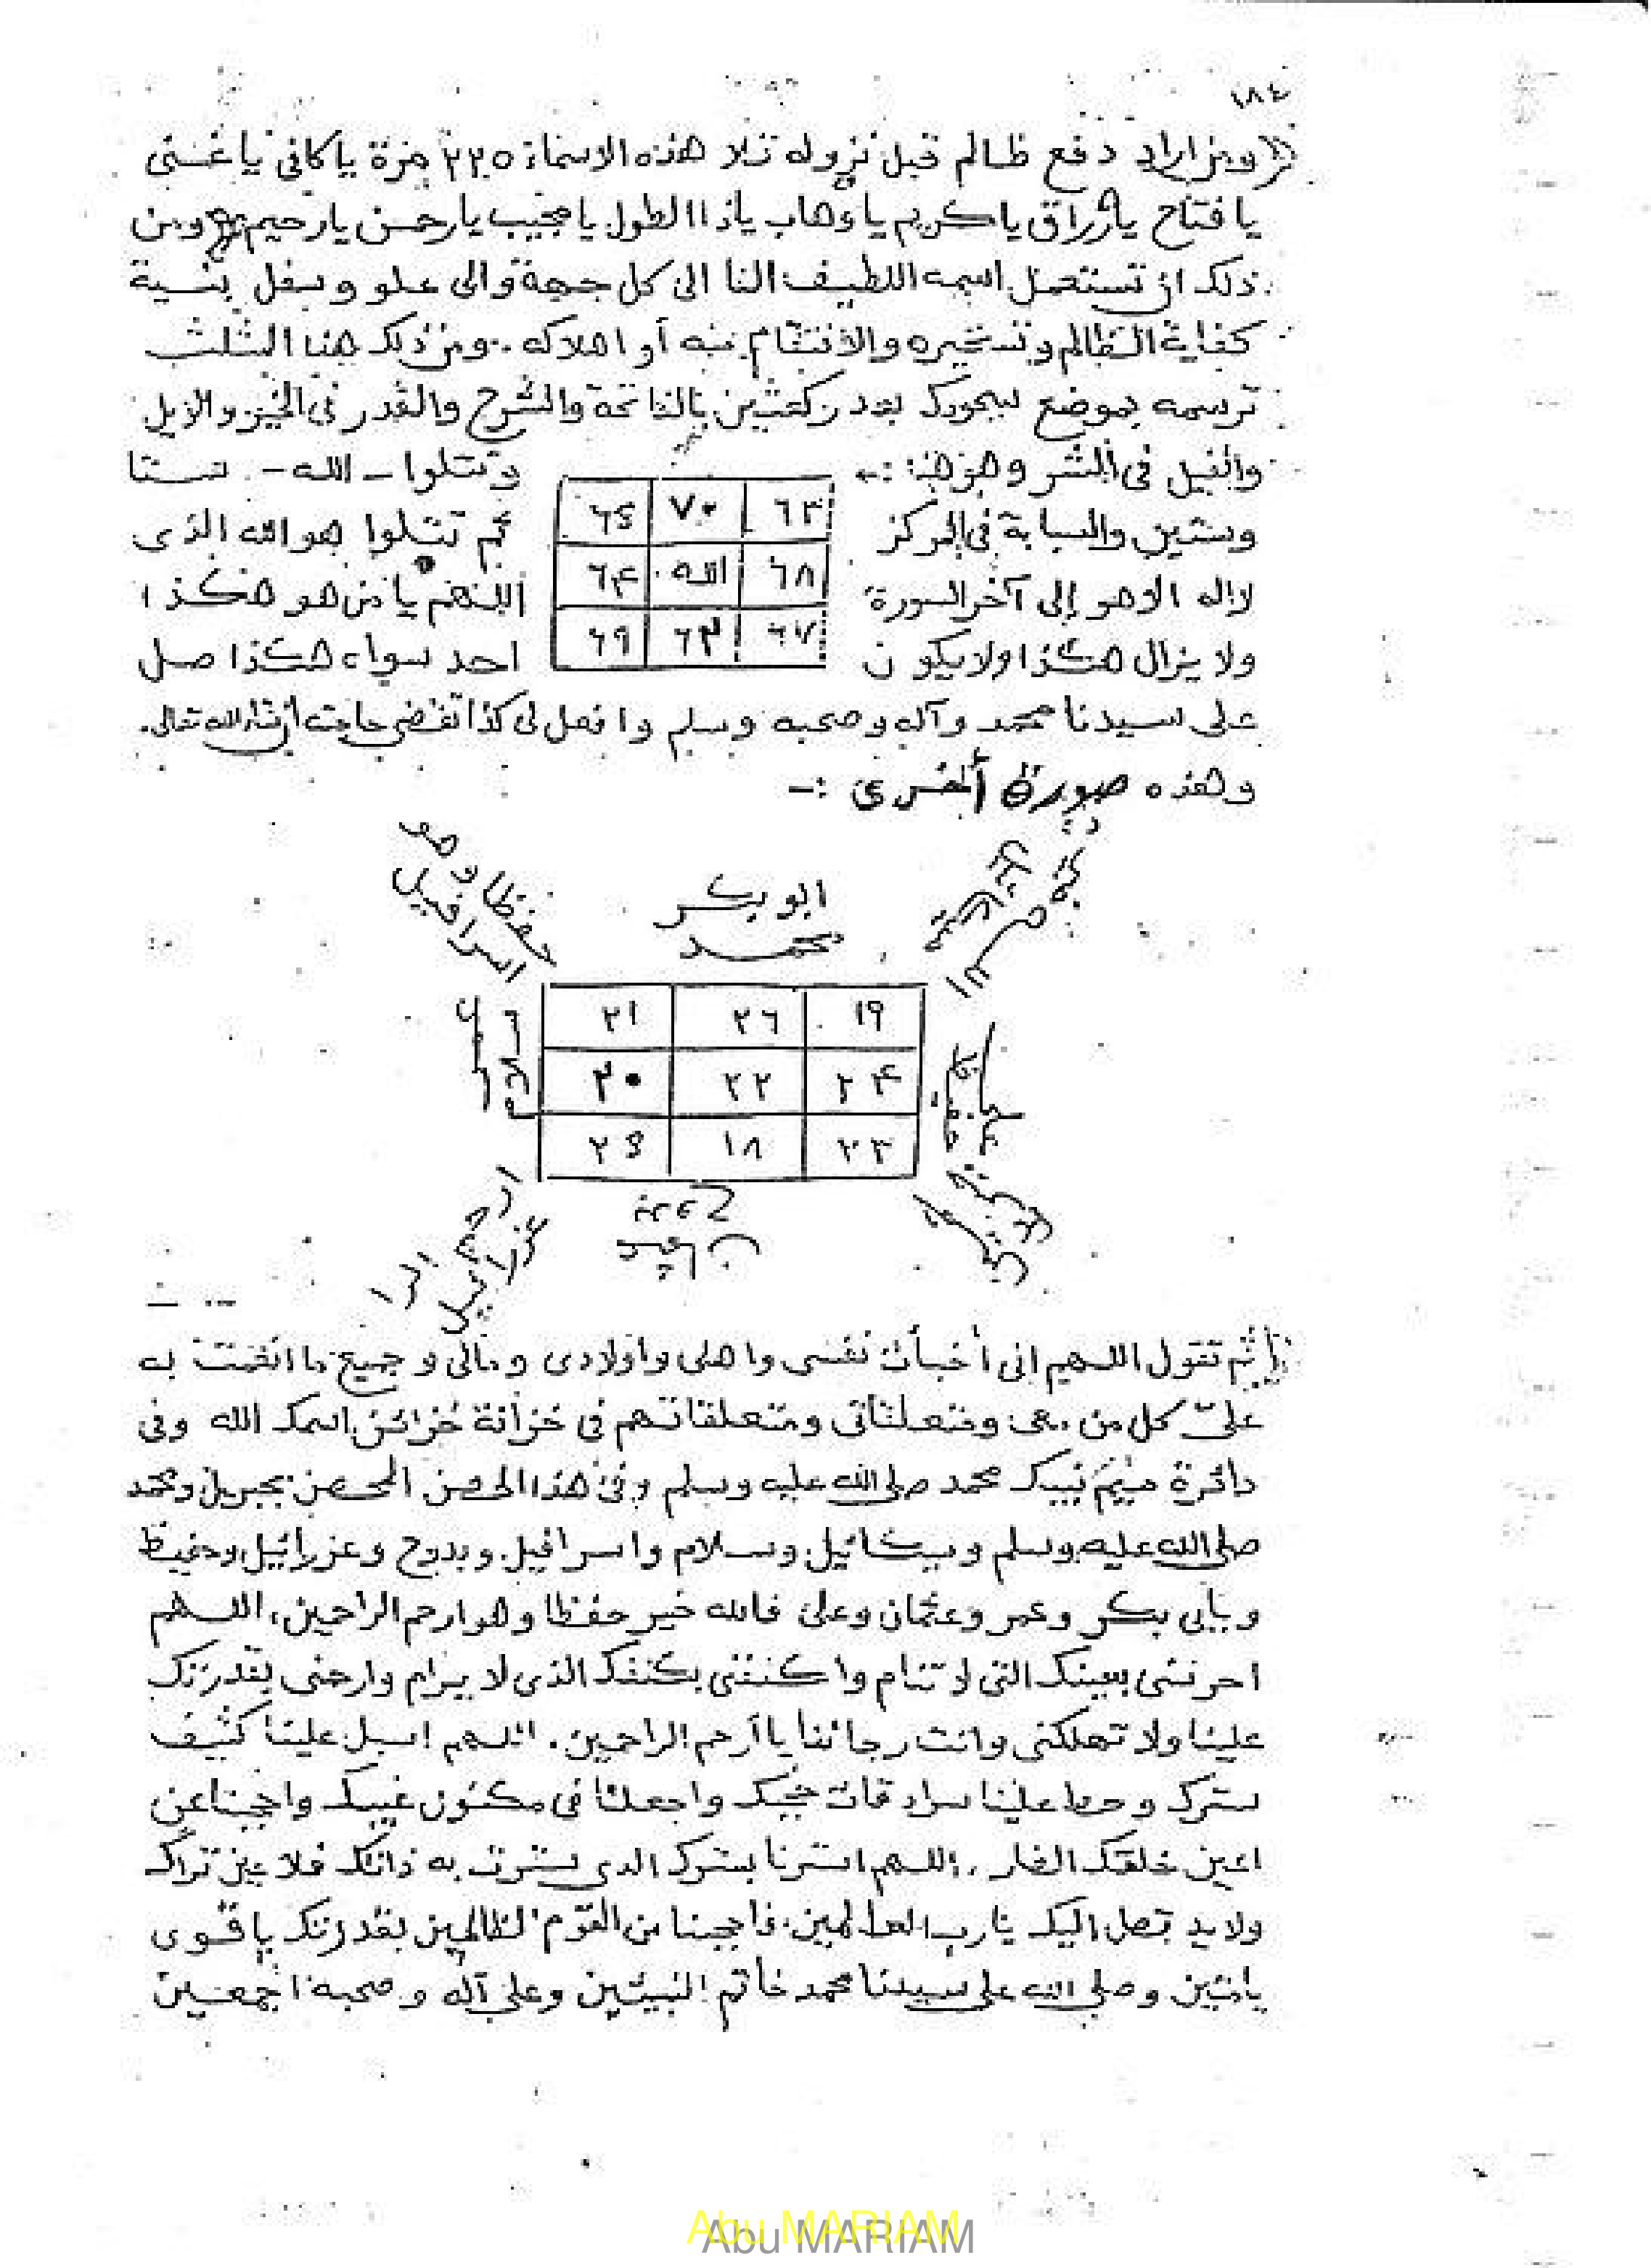 ١٨٤
ومن اراد دفع ظالم قبل نزوله تلا هذه الاسماء ٢٢٥ مرة يا كافى يا غنى
يا فتاح يا رزاق يا كريم يا وهاب يا ذا الطول يا مجيب يا رحمن يا رحيم ومن
ذلك ان تستعمل اسمه اللطيف الفا الى كل جهة والى علو وسفل بنية
كفاية الظالم وتسخيره والانتقام منه أو اهلاكه .. ومن ذلك هذا المثلث
ترسمه بموضع سجودك بعد ركعتين بالفاتحة والشرح والقدر فى الخير والزيل
والفيل فى الشر وهو هذا :- وتتلوا - الله - ستا
٦٥ ٧٠ ٦٣
وستين والسبابة فى المركز ثم تتلوا هو الله الذى
٦٤ الله ٦٨
لا إله الا هو إلى آخر السورة اللهم يا من هو هكذا
٦٩ ٦٢ ٦٧
ولا يزال هكذا ولا يكون احد سواه هكذا صل
على سيدنا محمد وآله وصحبه وسلم وافعل لى كذا تقضى حاجته ان شاء الله تعالى.
وهذه صورة أخرى :-
حفظا وهو
اسرافيل
ابو بكر
محمد
عمر
سلام
٢١ ٢٦ ١٩
٢٠ ٢٢ ٢٤
٢٥ ١٨ ٢٣
ارحم الرا
عزرائيل
ثم تقول اللهم انى أخبأت نفسى واهلى واولادى ومالى وجميع ما انعمت به
علىّ كل من معى ومتعلقاتى ومتعلقاتهم فى خزانة خزائن اسمك الله وفى
دائرة ميم نبيك محمد صلى الله عليه وسلم وفى هذا الحصن المحصن بجبريل ومحمد
صلى الله عليه وسلم وميكائيل وسلام واسرافيل وبدوح وعزرائيل وحفيظ
وبابى بكر وعمر وعثمان وعلى فالله خير حفظا وهو ارحم الراحمين، اللهم
احرسنى بعينك التى لا تنام واكنفنى بكنفك الذى لا يرام وارحمنى بقدرتك
علينا ولا تهلكنى وانت رجائنا يا أرحم الراحمين. اللهم اسبل علينا كثيف
سترك وحط علينا سرادقات حجبك واجعلنا فى مكنون غيبك واحجبنا عن
اعين خلقك الغار. اللهم استرنا بسترك الذى سترت به ذاتك فلا عين تراك
ولا يد تصل اليك يا رب العالمين. فاحجبنا من القوم الظالمين بقدرتك يا قوى
يا متين وصلى الله على سيدنا محمد خاتم النبيين وعلى آله وصحبه اجمعين
Abu MARIAM
Abu MARIAM